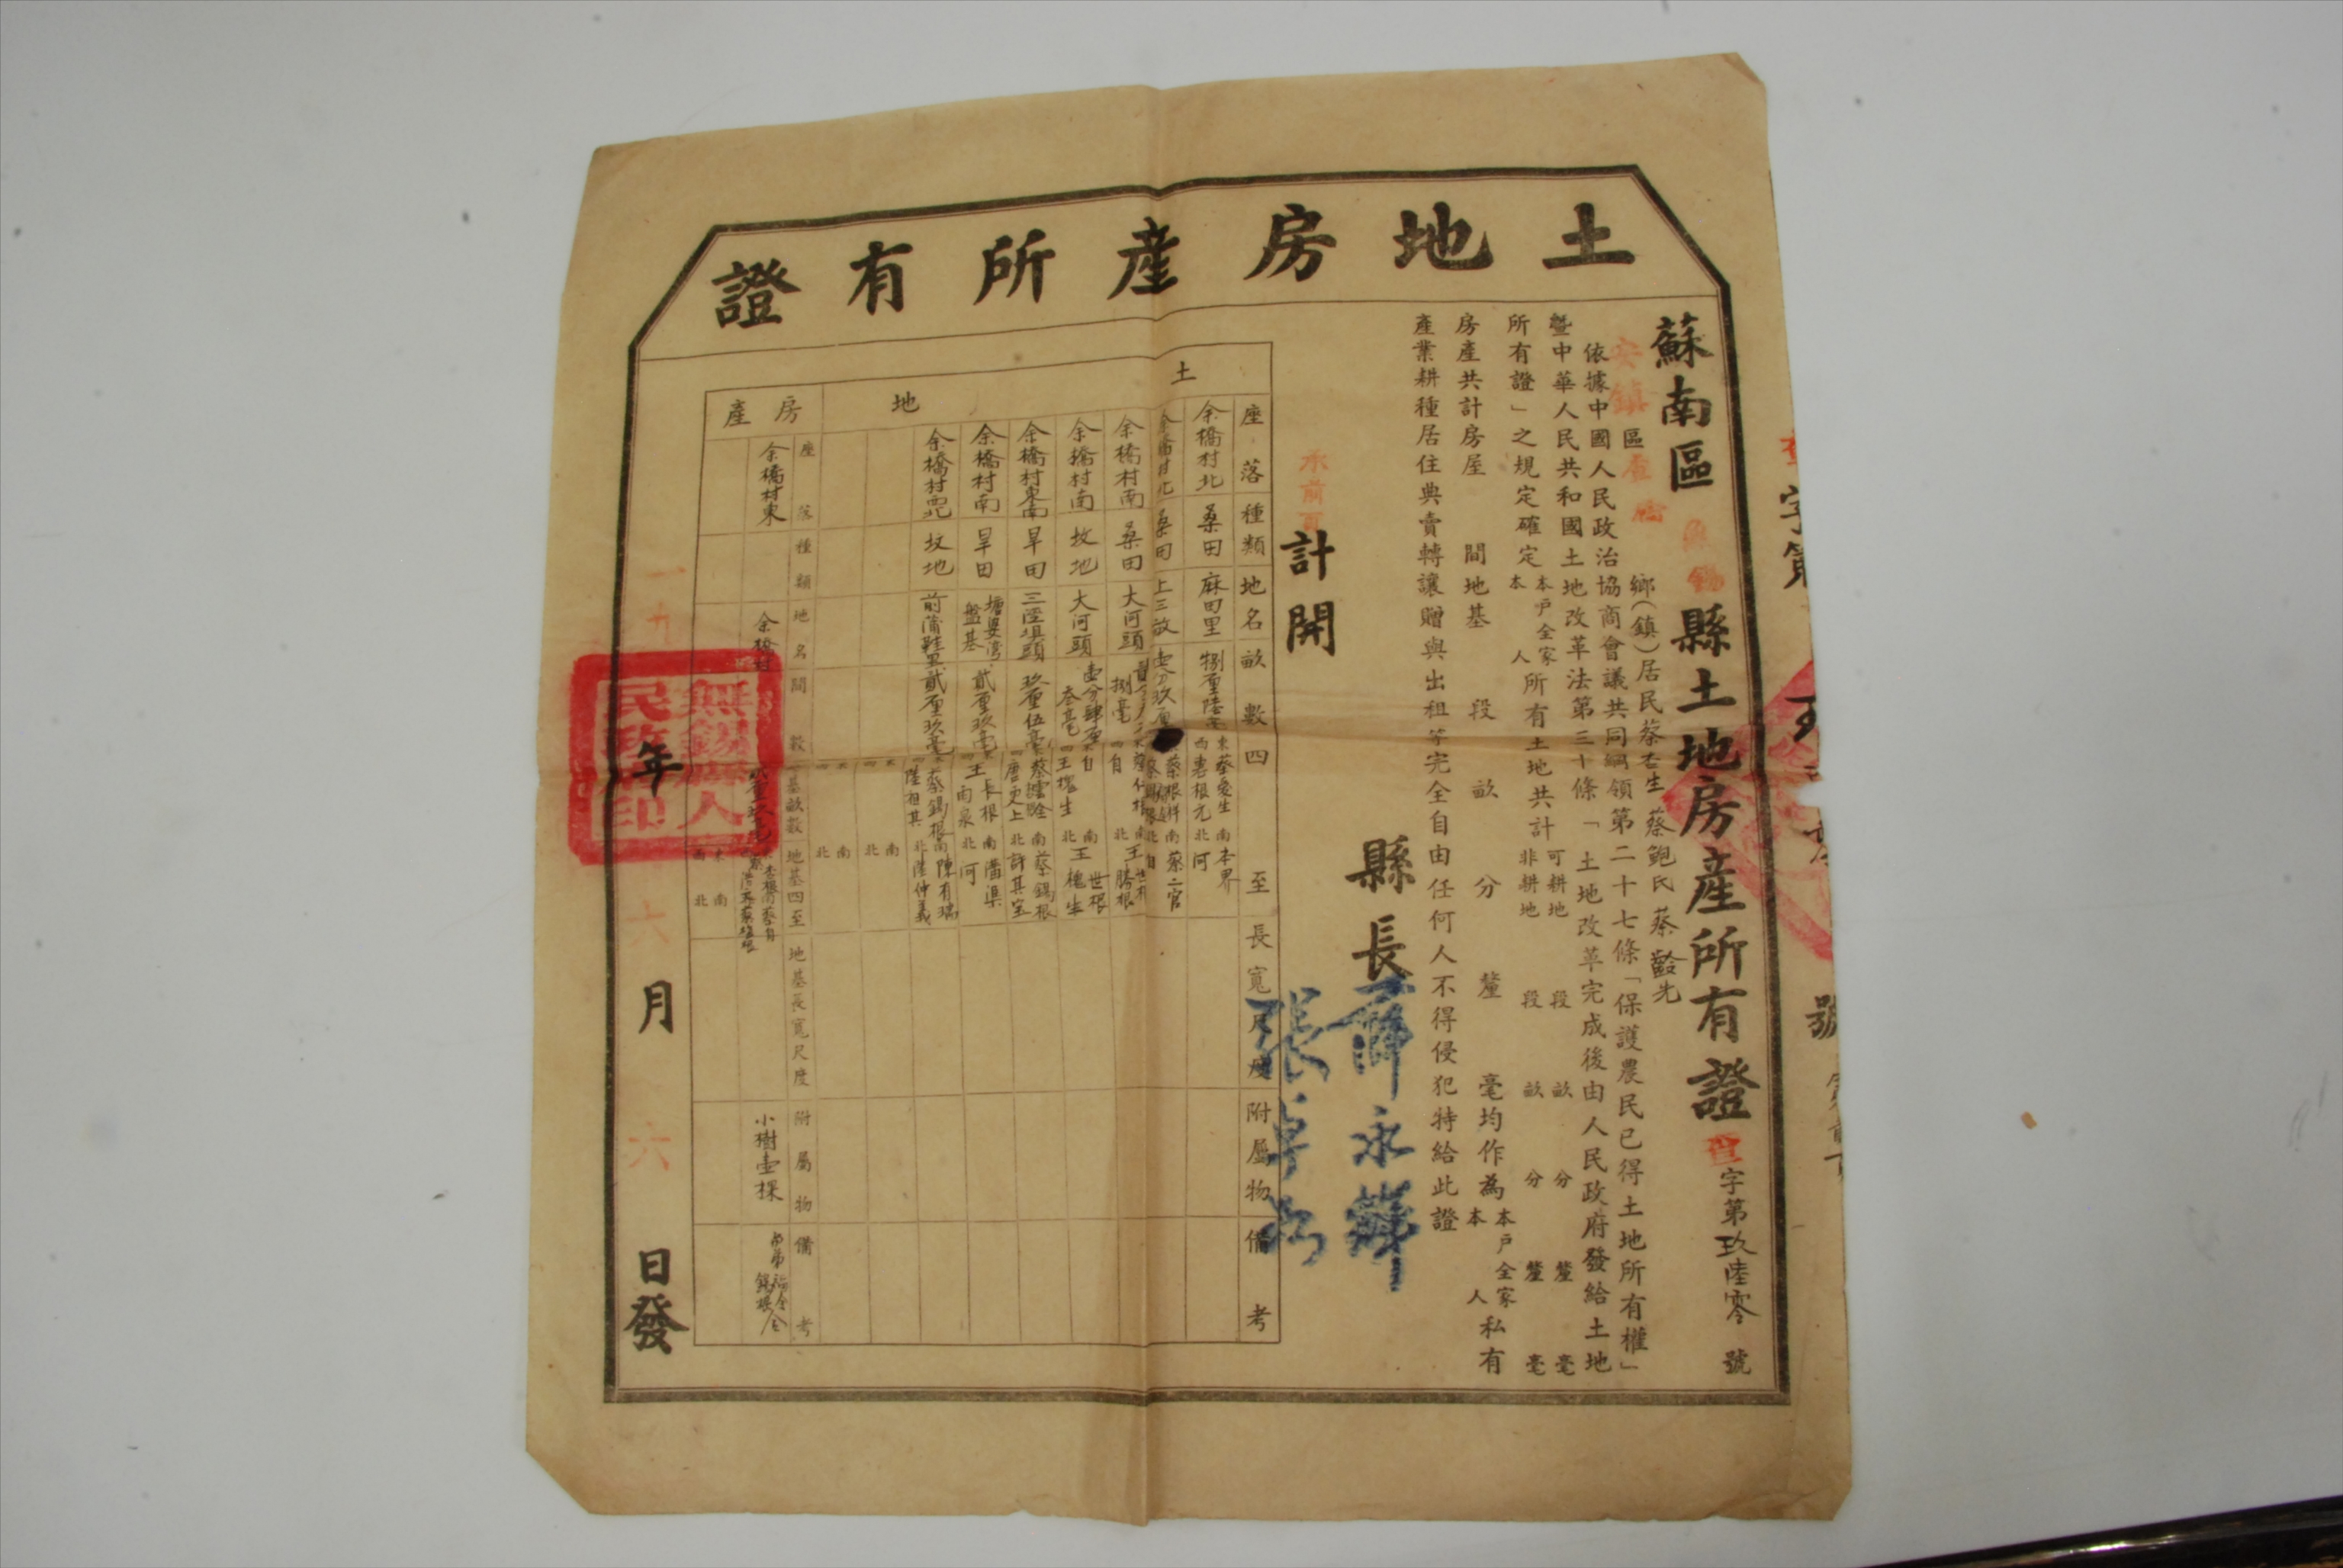 土地房產所有證
蘇南區無錫縣土地房產所有證 字第玖陸零號
安鎮區 鄉(鎮)居民蔡杏生 蔡鮑氏 蔡齡先
依據中國人民政治協商會議共同綱領第二十七條「保護農民已得土地所有權」
暨中華人民共和國土地改革法第三十條「土地改革完成後由人民政府發給土地
所有證」之規定確定 本戶全家 本 人 所有土地共計 可耕地 段 畝 分 釐 毫 非耕地 段 畝 分 釐 毫
房產共計房屋 間地基 段 畝 分 釐 毫均作為 本戶全家 本 人 私有
產業耕種居住典賣轉讓贈與出租等完全自由任何人不得侵犯特給此證
縣長 薛永輝
張卓如
承前頁
計開
土地
座落 種類 地名 畝數 四至 長寬尺度 附屬物 備考
余橋村北 桑田 麻田里 捌厘陸毫 東蔡愛生 西惠根元 南本界 北河
余橋村北 桑田 上三畝 壹分玖厘 蔡根祥 南蔡二官 北自
余橋村南 桑田 大河頭 捌毫 西自 南王世根 北王勝根
余橋村南 坟地 大河頭 壹分肆厘叁毫 東自 西王槐生 南王世根 北王槐生
余橋村東南 旱田 三涇埧頭 玖厘伍毫 南蔡錫根 北許其宝
余橋村南 旱田 塘婆湾盤基 貳厘玖毫 東王长根 西王雨泉 南潘渠 北河
余橋村西北 坟地 前蒲鞋里 貳厘玖毫 東蔡錫根 西陸祖其 南陳有瑞 北陸仲義
東 西 南 北
東 西 南 北
房產
座落 種類 地名 間數 基畝數 地基四至 地基長寬尺度 附屬物 備考
余橋村東 余橋村 小樹壹棵
東 西 南 北
一九 年六月六日發
無錫縣人民政府印
字第 號